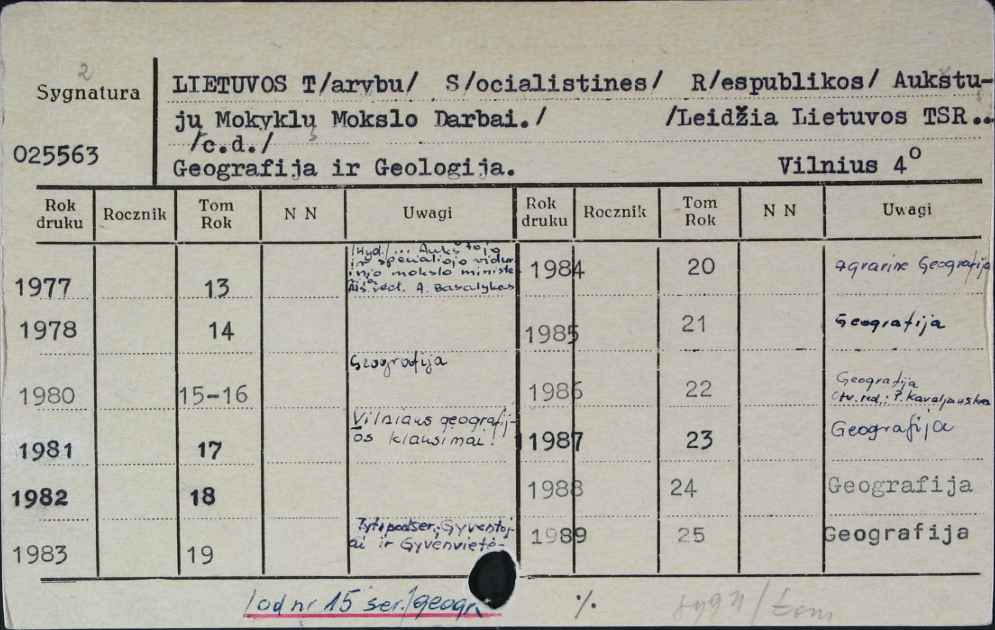 2
Sygnatura
025563
LIETUVOS T/arybu/ S/ocialistines/ R/espublikos/ Aukštu-
jų Mokyklų Mokslo Darbai./ /Leidžia Lietuvos TSR..
/c.d./
Geografija ir Geologija. Vilnius 4°
Rok druku Rocznik Tom Rok N N Uwagi Rok druku Rocznik Tom Rok N N Uwagi
1977 13 /Wyd./... Aukštojo
ir specialiojo vidur
injo mokslo ministe
red. A. Basalykas
1984 20 Agrarinė Geografija
1978 14
1985 21 Geografija
1980 15-16 Geografija
1986 22 Geografija
Otv. red.:
1981 17 Vilniaus geografij-
os klausimai.
1987 23 Geografija
1982 18
1988 24 Geografija
1983 19 Gyventoj-
ai ir Gyvenvietė-
1989 25 Geografija
/od nr 15 ser./geogr.
·/.
sygn/